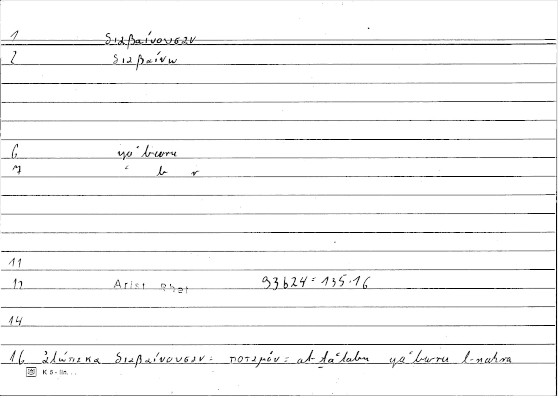 1 διαβαίνουσαν
2 διαβαίνω
6 yaʿburu
7 ʿ b r
11
13 Arist Rhet 93b24 = 135.16
14
16 ἀλώπεκα διαβαίνουσαν = ποταμόν = aṯ-ṯaʿlabu yaʿburu l-nahra